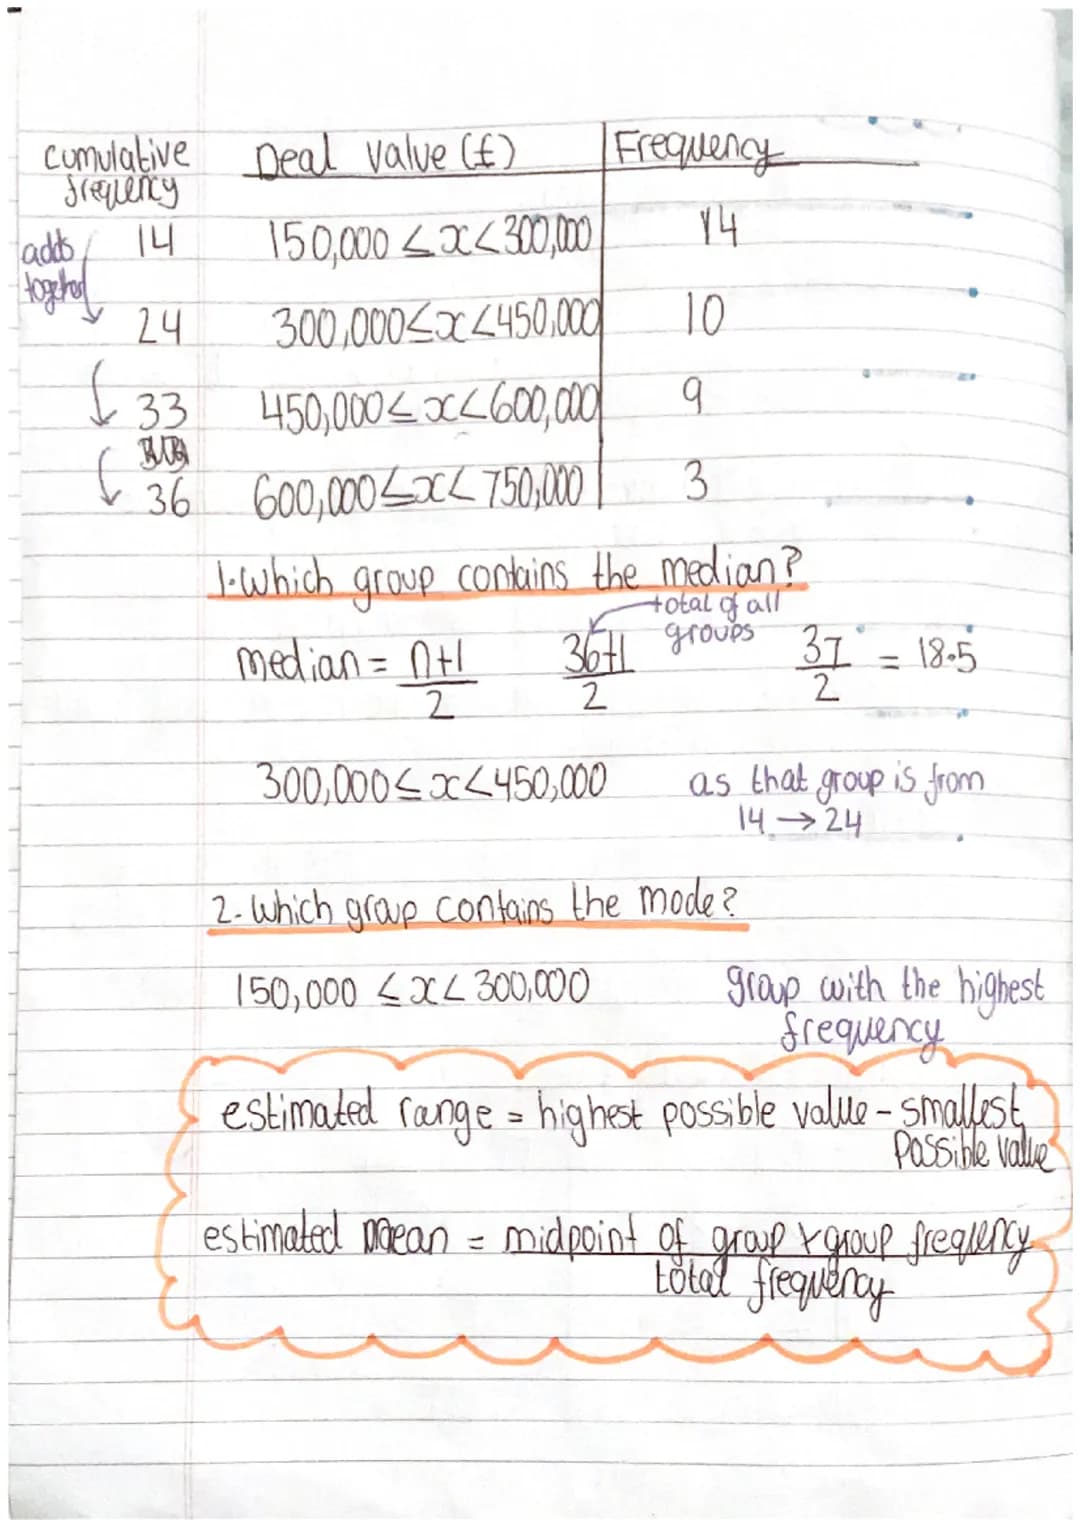 cumulative frequency | Deal value (£) | Frequency
adds together
14 | 150,000 ≤ x < 300,000 | 14
24 | 300,000 ≤ x < 450,000 | 10
33 | 450,000 ≤ x < 600,000 | 9
36 | 600,000 ≤ x < 750,000 | 3
1. Which group contains the median?
total of all groups
median = n+1/2   36+1/2   37/2 = 18.5
300,000 ≤ x < 450,000   as that group is from
14 → 24
2. Which group contains the mode?
150,000 ≤ x < 300,000   group with the highest
frequency
estimated range = highest possible value - smallest
possible value
estimated mean = midpoint of group x group freqency
total frequency